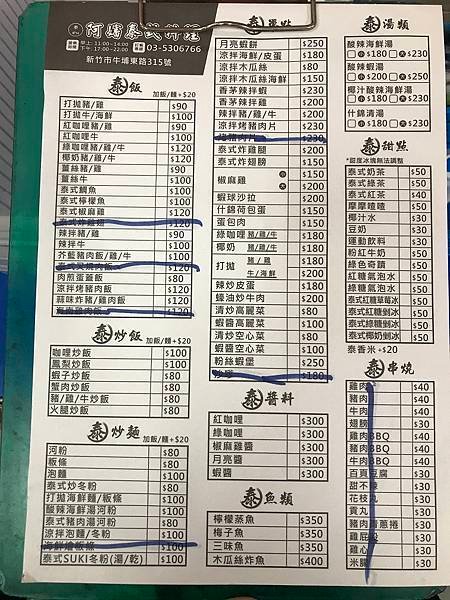 阿嬌泰式料理
早上:11:00~14:00
下午:17:00~22:00
03-5306766
新竹市牛埔東路315號
泰飯 加飯/麵+$20
打拋豬/雞 $90
打拋牛/海鮮 $100
紅咖哩豬/雞 $90
紅咖哩牛 $100
綠咖哩豬/雞/牛 $100
椰奶豬/雞/牛 $100
薑絲豬/雞 $90
薑絲牛 $100
泰式鯛魚 $100
泰式檸檬魚 $100
泰式椒麻雞 $120
泰式炸雞翅 $120
辣拌豬/雞 $90
辣拌牛 $100
芥藍豬肉飯/雞/牛 $100
$120
肉煎蛋蓋飯 $80
涼拌烤豬肉飯 $120
蒜味炸豬/雞肉飯 $120
海南雞肉飯 $120
泰炒飯 加飯/麵+$20
咖哩炒飯 $100
鳳梨炒飯 $100
蝦子炒飯 $80
蟹肉炒飯 $80
豬/雞/牛炒飯 $80
火腿炒飯 $80
泰炒麵 加飯/麵+$20
河粉 $80
粄條 $80
泡麵 $80
泰式炒冬粉 $80
打拋海鮮麵/粄條 $100
酸辣海鮮湯河粉 $100
泰式豬肉湯河粉 $80
涼拌泡麵/冬粉 $100
海鮮燴粄條 $100
泰式SUKI冬粉(湯/乾) $100
泰單點
月亮蝦餅 $250
涼拌海鮮/皮蛋 $180
涼拌木瓜絲 $80
涼拌木瓜絲海鮮 $150
香茅辣拌蝦 $180
香茅辣拌雞 $200
辣拌豬/雞/牛 $180
涼拌烤豬肉片 $230
$230
泰式炸雞腿 $200
泰式炸翅膀 $150
椒麻雞 小 $150
大 $200
蝦球沙拉 $200
什錦荷包蛋 $150
蛋包肉 $150
綠咖哩 豬/雞/牛 $180
椰奶 豬/雞/牛 $180
打拋 豬/雞 $180
牛/海鮮 $200
辣炒皮蛋 $180
蠔油炒牛肉 $200
清炒高麗菜 $80
蝦醬高麗菜 $100
清炒空心菜 $80
蝦醬空心菜 $100
粉絲蝦堡 $250
$180
泰醬料
紅咖哩 $300
綠咖哩 $300
椒麻雞醬 $300
月亮醬 $300
蝦醬 $300
泰魚類
檸檬蒸魚 $350
梅子魚 $350
三味魚 $350
木瓜絲炸魚 $400
泰湯類
酸辣海鮮湯
小$180 大$230
酸辣蝦湯
小$200 大$250
椰汁酸辣海鮮湯
小$180 大$230
什錦清湯
小$180 大$230
泰甜點
*甜度冰塊無法調整
泰式奶茶 $50
泰式綠茶 $50
泰式紅茶 $40
摩摩喳喳 $50
椰汁水 $30
豆奶 $30
運動飲料 $30
粉紅牛奶 $50
綠色奇蹟 $50
紅糖氣泡水 $50
綠糖氣泡水 $50
泰式紅糖草莓冰 $50
泰式紅糖剉冰 $50
泰式綠糖剉冰 $50
泰式椰奶剉冰 $50
泰香米+$20
泰串燒
雞肉 $40
豬肉 $40
牛肉 $40
翅膀 $30
雞肉BBQ $40
豬肉BBQ $40
牛肉BBQ $40
百頁豆腐 $30
甜不辣 $30
花枝丸 $30
貢丸 $30
豬肉青蔥捲 $30
雞屁股 $30
雞心 $30
米腸 $30